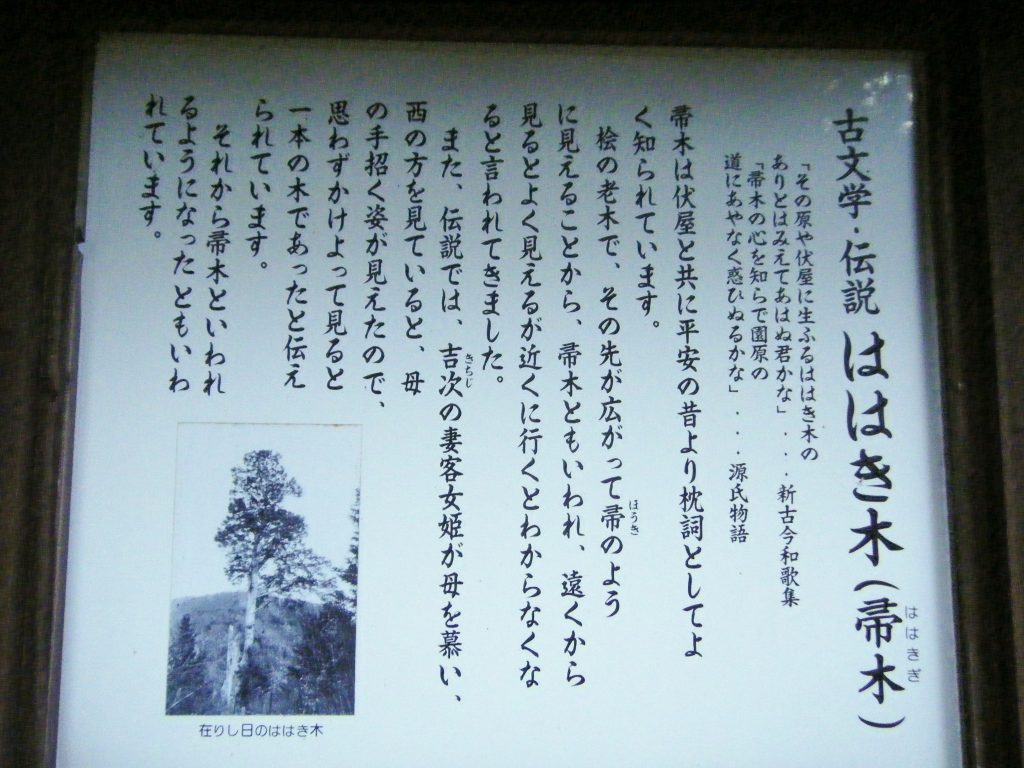 古文学・伝説 ははき木(帚木)
ははきぎ
「その原や伏屋に生ふるははき木の
ありとはみえてあはぬ君かな」・・・新古今和歌集
「帚木の心を知らで園原の
道にあやなく惑ひぬるかな」・・・源氏物語
帚木は伏屋と共に平安の昔より枕詞としてよ
く知られています。
桧の老木で、その先が広がって帚のよう
ほうき
に見えることから、帚木ともいわれ、遠くから
見るとよく見えるが近くに行くとわからなくな
ると言われてきました。
また、伝説では、吉次の妻客女姫が母を慕い、
きちじ
西の方を見ていると、母
の手招く姿が見えたので、
思わずかけよって見ると
一本の木であったと伝え
られています。
それから帚木といわれ
るようになったともいわ
れています。
在りし日のははき木